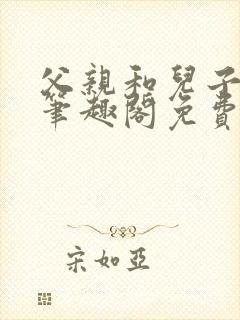 父親和兒子
筆趣閣免費
宋如亞